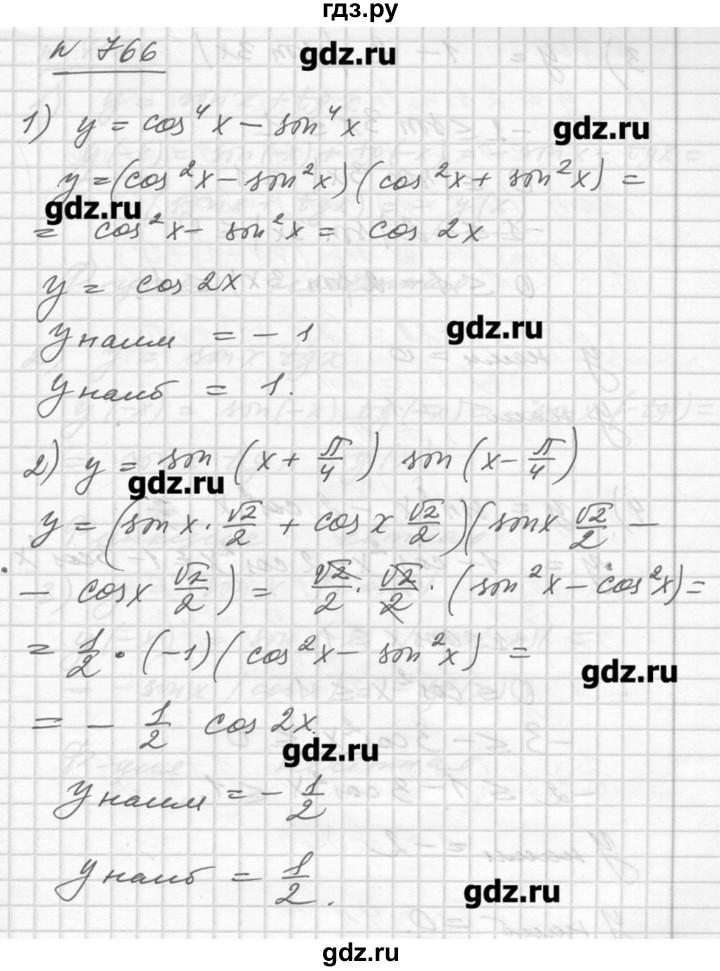 гдз.ру
№ 766
gdz.ru
1) y = cos⁴x − sin⁴x
gdz.ru
y = (cos²x − sin²x)(cos²x + sin²x) =
gdz.ru
= cos²x − sin²x = cos 2x
y = cos 2x
y наим = −1
gdz.ru
y наиб = 1.
2) y = sin (x + π/4) sin (x − π/4)
gdz.ru
y = (sin x · √2/2 + cos x √2/2)(sin x √2/2 −
− cos x √2/2) = √2/2 · √2/2 · (sin²x − cos²x) =
= 1/2 · (−1)(cos²x − sin²x) =
gdz.ru
= − 1/2 cos 2x.
gdz.ru
y наим = − 1/2
y наиб = 1/2.
gdz.ru
gdz.ru